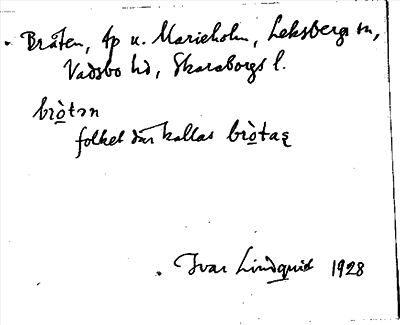 Bråten, tp u. Marieholm, Leksbergs sn,
Vadsbo hd, Skaraborgs l.
bròtən
folket där kallas bròtaʀ
Ivar Lindquist 1928